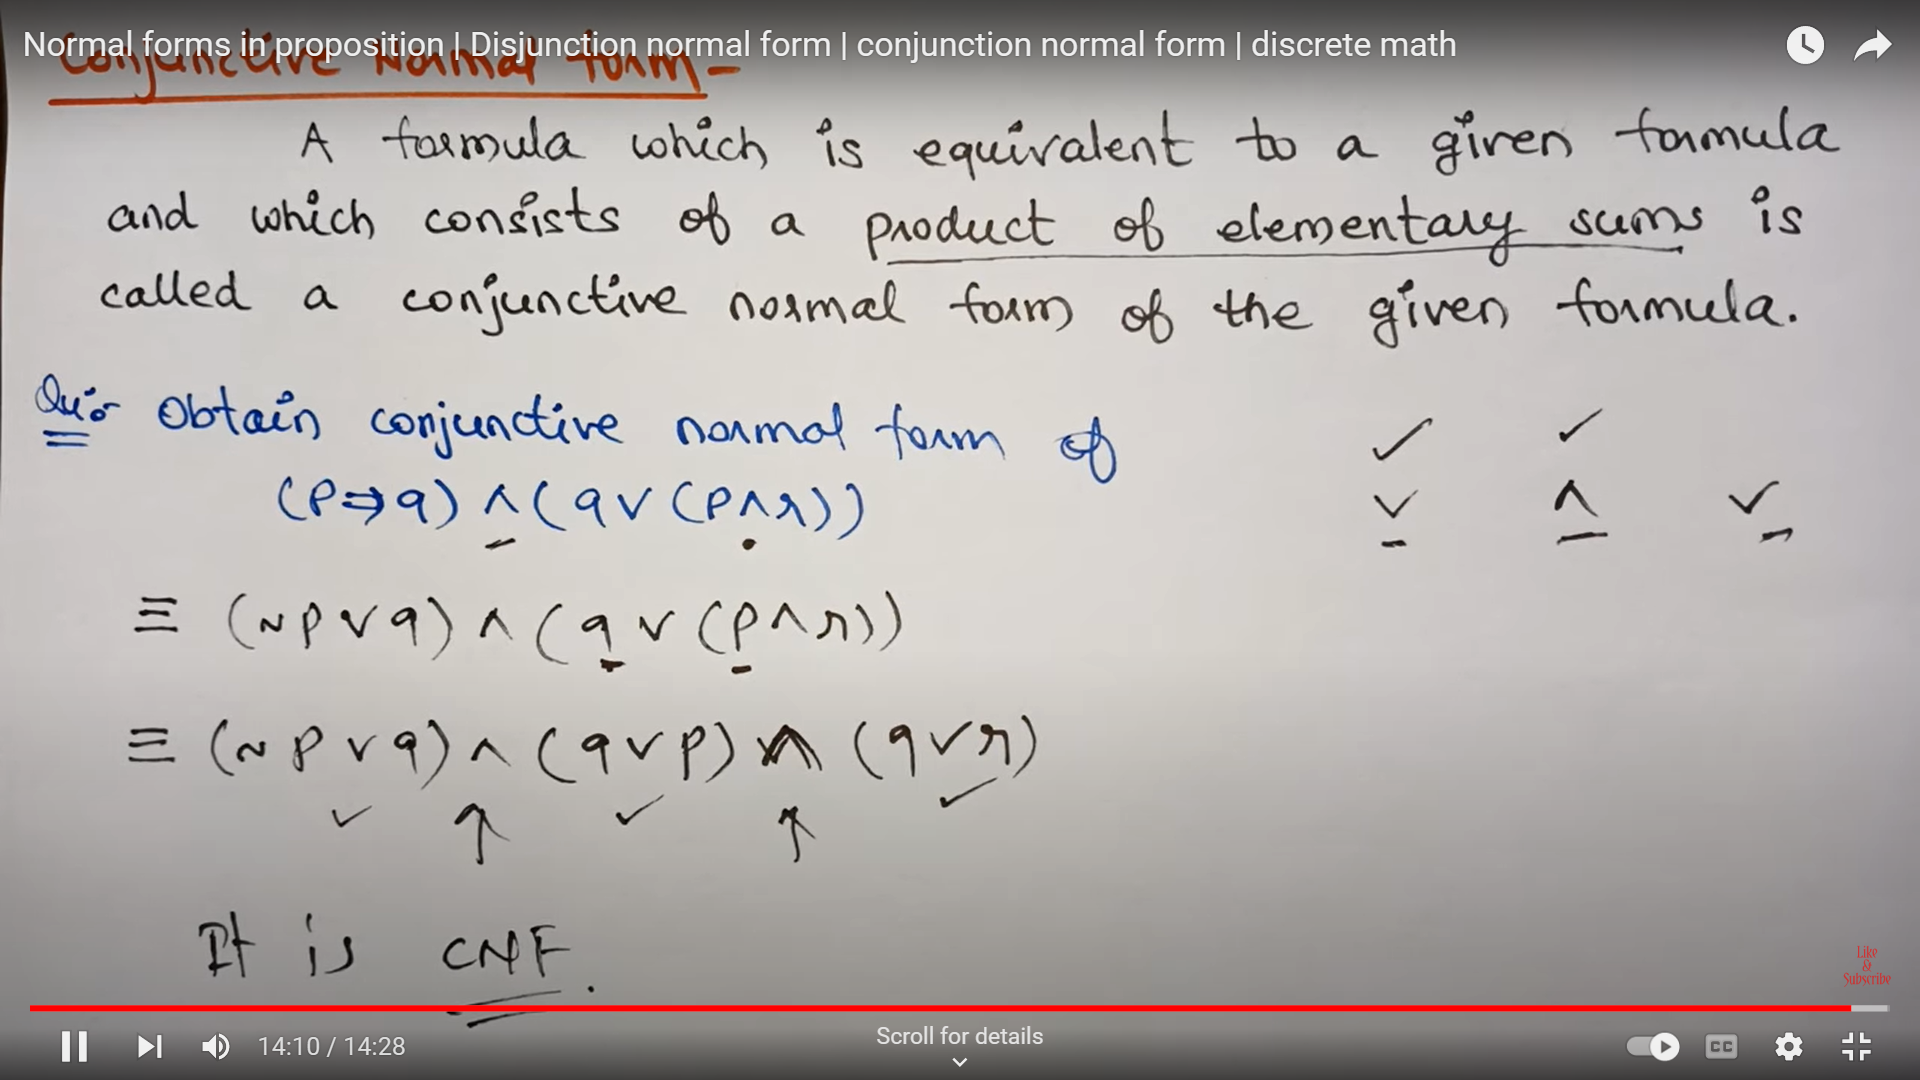 Normal forms in proposition | Disjunction normal form | conjunction normal form | discrete math
Conjunctive Normal form-
A formula which is equivalent to a given formula
and which consists of a product of elementary sums is
called a conjunctive normal form of the given formula.
Obtain conjunctive normal form of
(P⇒q) ∧ (q ∨ (P∧r))
≡ (~P ∨ q) ∧ (q ∨ (P∧r))
≡ (~P ∨ q) ∧ (q ∨ P) ∧ (q ∨ r)
∨ ∧ ∨
It is CNF.
Like
&
Subscribe
14:10 / 14:28
Scroll for details
CC